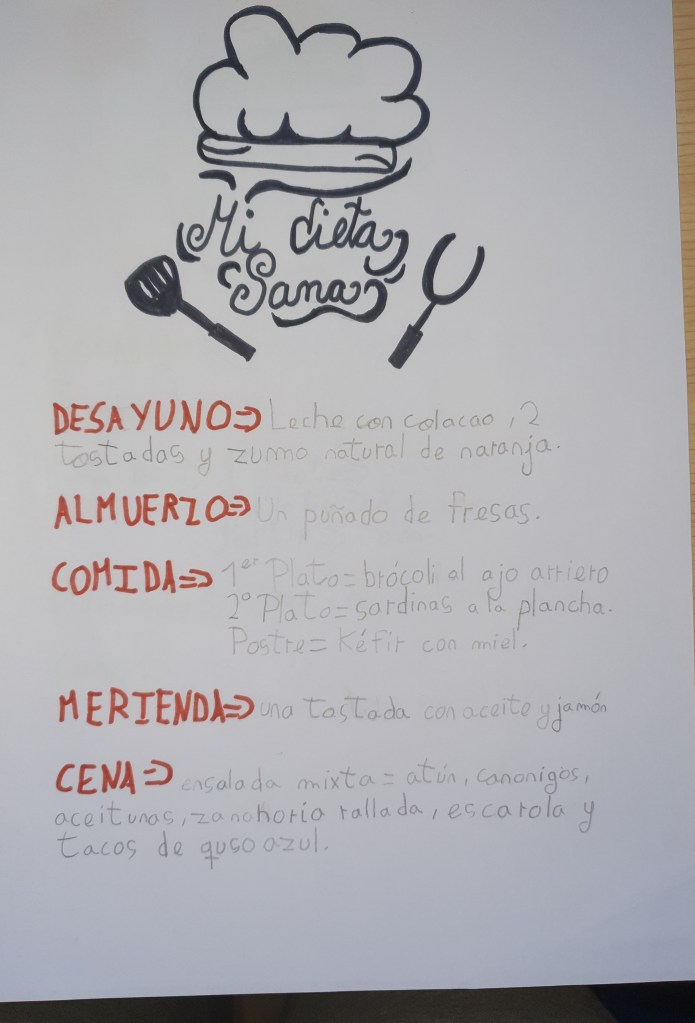 Mi dieta
Sana
DESAYUNO⇒ Leche con colacao, 2
tostadas y zumo natural de naranja.
ALMUERZO⇒ Un puñado de fresas.
COMIDA⇒ 1er Plato= brócoli al ajo arriero
2º Plato= sardinas a la plancha.
Postre= Kéfir con miel.
MERIENDA⇒ una tostada con aceite y jamón
CENA⇒ ensalada mixta= atún, canonigos,
aceitunas, zanahoria rallada, escarola y
tacos de quso azul.